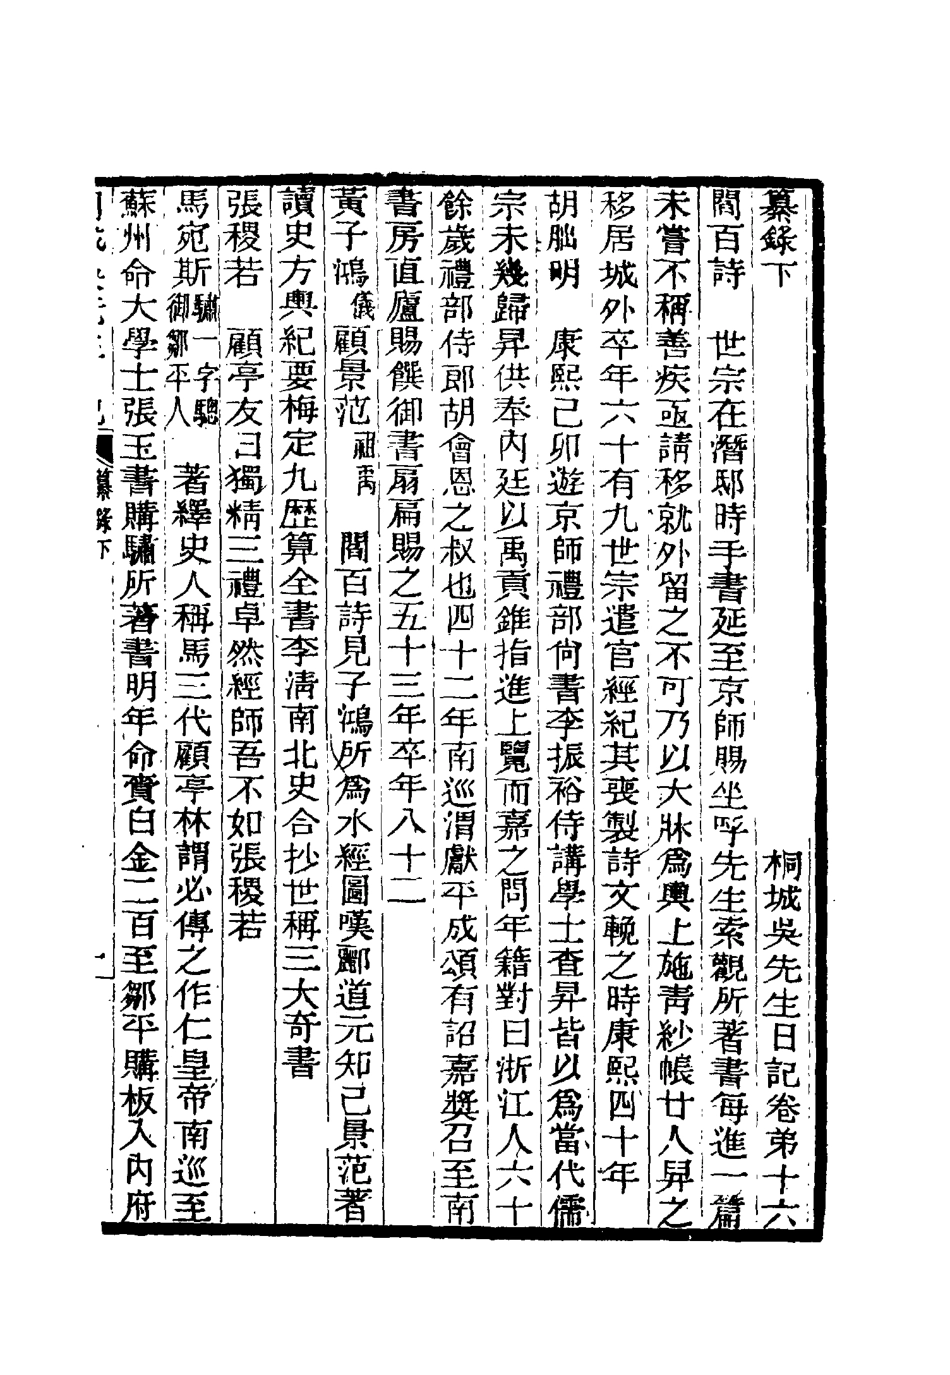 纂錄下　桐城吳先生日記卷弟十六
閻百詩　世宗在潛邸時手書延至京師賜坐呼先生索觀所著書每進一篇
未嘗不稱善疾亟請移就外留之不可乃以大牀爲輿上施靑紗帳廿人舁之
移居城外卒年六十有九世宗遣官經紀其喪製詩文輓之時康熙四十年
胡朏明　康熙己卯遊京師禮部尙書李振裕侍講學士查昇皆以爲當代儒
宗未幾歸昇供奉內廷以禹貢錐指進上覽而嘉之問年籍對曰浙江人六十
餘歲禮部侍郎胡會恩之叔也四十二年南巡渭獻平成頌有詔嘉奬召至南
書房直廬賜饌御書扇扁賜之五十三年卒年八十二
黃子鴻儀顧景范祖禹　閻百詩見子鴻所爲水經圖嘆酈道元知己景范著
讀史方輿紀要梅定九歴算全書李淸南北史合抄世稱三大奇書
張稷若　顧亭友曰獨精三禮卓然經師吾不如張稷若
馬宛斯驌一字驄御鄒平人　著繹史人稱馬三代顧亭林謂必傳之作仁皇帝南巡至
蘇州命大學士張玉書購驌所著書明年命賫白金二百至鄒平購板入內府
纂錄下